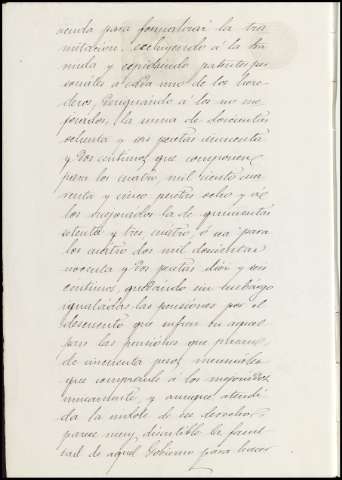 cenda para formalizar la tra
mitacion, excluyendo á la her
mula y expidiendo patentes per
sonales á cada uno de los here
deros, asignando á los no me
jorados, la suma de doscientas
ochenta y seis pesetas cincuenta
y dos centimos que componen
para los cuatro, mil ciento cua
renta y cinco pesetas ocho y á
los mejorados la de quinientas
setenta y tres, cuatro, ó sea para
los cuatro dos mil doscientas
noventa y dos pesetas diez y seis
centimos, quedando sin embargo
igualadas las pensiones por el
descuento que sufren en aquel
pais las pensiones que pasan
de cincuenta pesos mensuales
que comprende á los mejorados
unicamente, y aunque atendi
da la indole de ese derecho,
parece muy discutible la facul
tad de aquel Gobierno para hacer